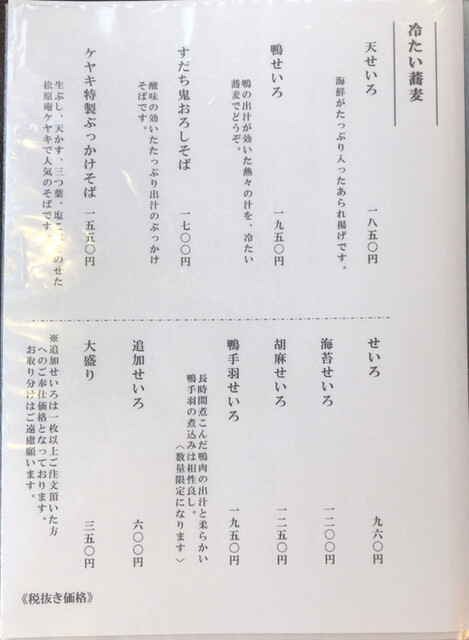 冷たい蕎麦
天せいろ 一八五〇円
海鮮がたっぷり入ったあられ揚げです。
鴨せいろ 一九五〇円
鴨の出汁が効いた熱々の汁を、冷たい
蕎麦でどうぞ。
すだち鬼おろしそば 一七〇〇円
酸味の効いたたっぷり出汁のぶっかけ
そばです。
ケヤキ特製ぶっかけそば 一五五〇円
生ぶし、天かす、三つ葉、塩こ のせた
松原庵ケヤキで人気のそばです
せいろ 九六〇円
海苔せいろ 一二〇〇円
胡麻せいろ 一二五〇円
鴨手羽せいろ 一九五〇円
長時間煮こんだ鴨肉の出汁と柔らかい
鴨手羽の煮込みは相性良し。
〈数量限定になります〉
追加せいろ 六〇〇円
大盛り 三五〇円
※追加せいろは一枚以上ご注文頂いた方
へのご奉仕価格となっております。
お取り分けはご遠慮願います。
《税抜き価格》